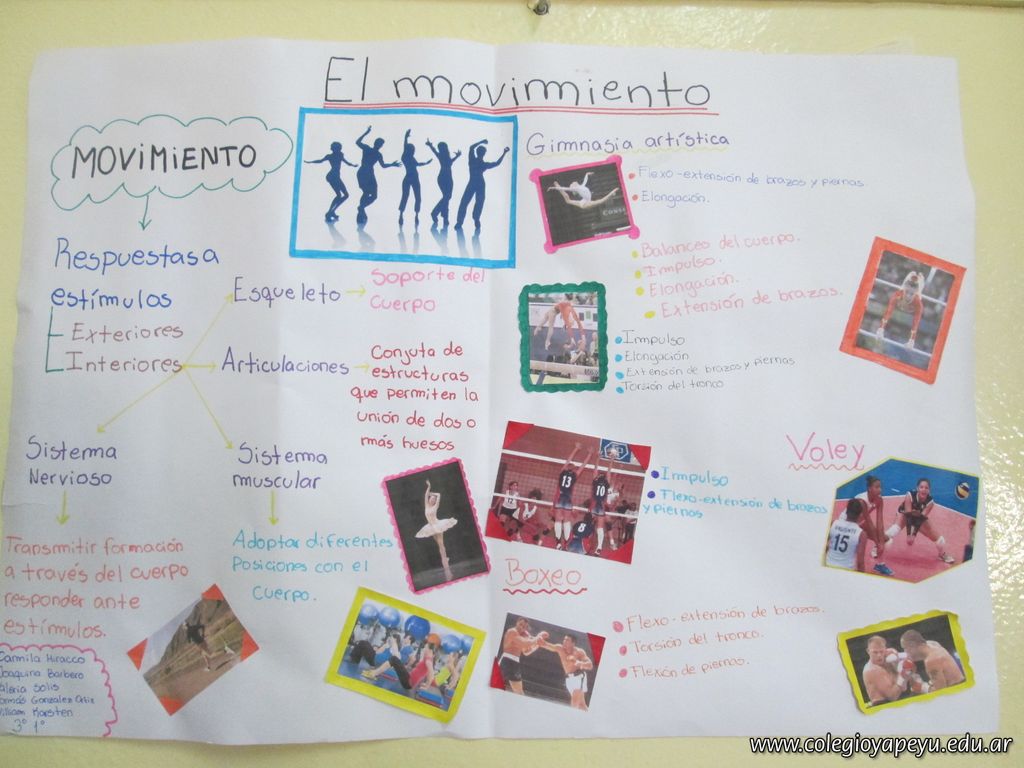 El movimiento
MOVIMIENTO
Respuestas a
estímulos
Exteriores
Interiores
Esqueleto
Soporte del
Cuerpo
Articulaciones
Conjuta de
estructuras
que permiten la
unión de dos o
más huesos
Sistema
Nervioso
Transmitir formación
a través del cuerpo
responder ante
estímulos.
Sistema
muscular
Adoptar diferentes
Posiciones con el
cuerpo.
Camila Hiracco
Joaquina Barbero
Valeria Solis
Tomás Gonzalez Ortiz
William Karsten
3° 1°
Gimnasia artística
Flexo-extensión de brazos y piernas.
Elongación.
Balanceo del cuerpo.
Impulso.
Elongación.
Extensión de brazos.
Impulso
Elongación
Extensión de brazos y piernas
Torsión del tronco
Voley
Impulso
Flexo-extensión de brazos
y piernas
13
10
8
15
Boxeo
Flexo-extensión de brazos.
Torsión del tronco.
Flexión de piernas.
www.colegioyapeyu.edu.ar